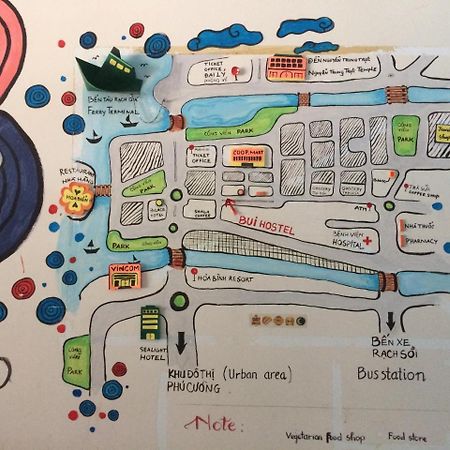 TICKET
OFFICE
DAILY
ĐỀN NGUYỄN TRUNG TRỰC
Nguyễn Trung Trực Temple
BẾN TÀU RẠCH GIÁ
FERRY TERMINAL
CÔNG VIÊN PARK
CÔNG VIÊN
PARK
TICKET
OFFICE
COOP.MART
RESTAURANT
NHÀ HÀNG
HOA BIỂN
CÔNG VIÊN
PARK
PALACE
HOTEL
SHALA
COFFEE
BUI HOSTEL
ATM
TRÀ SỮA
COFFEE SHOP
NHÀ THUỐC
PHARMACY
BỆNH VIỆN
HOSPITAL
PARK CÔNG VIÊN
VINCOM
HÒA BÌNH RESORT
SEALIGHT
HOTEL
CÔNG
VIÊN
PARK
KHU ĐÔ THỊ (Urban area)
PHÚ CƯỜNG
BẾN XE
RẠCH SỎI
Bus station
Note:
Vegetarian food shop
Food store